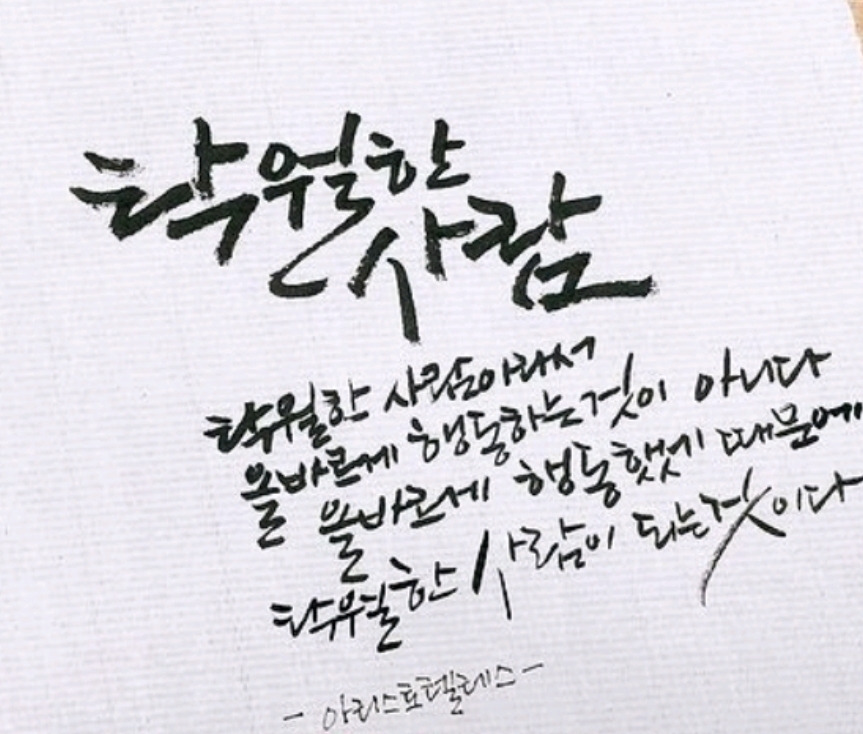 탁월한
사람
탁월한 사람이라서
올바르게 행동하는것이 아니다
올바르게 행동했기 때문에
탁월한 사람이 되는것이다
- 아리스토텔레스 -